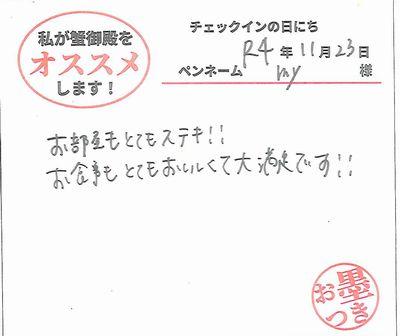 私が蟹御殿を
オススメ
します！
チェックインの日にち
R4年11月23日
ペンネーム my 様
お部屋もとてもステキ!!
お食事もとてもおいしくて大満足です!!
お墨つき